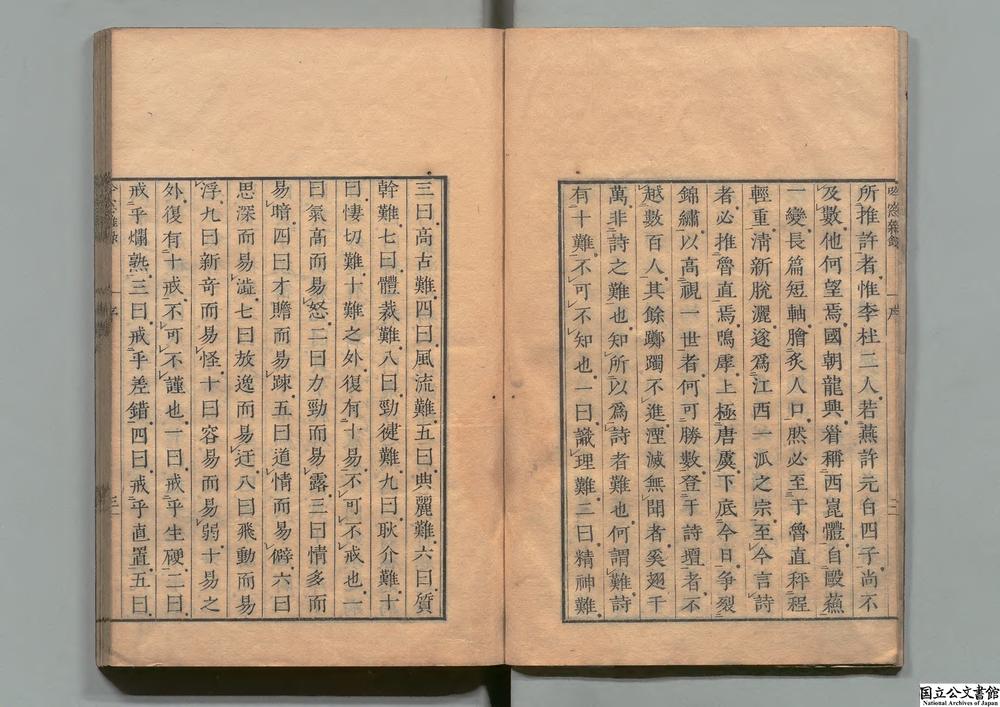 所推許者惟李杜二人若燕許元白四子尚不
及數他何望焉國朝龍興皆稱西崑體自毆蘓
一變長篇短軸膾炙人口然必至于魯直秤程
輕重淸新脫灑遂爲江西一派之宗至今言詩
者必推魯直焉嗚虖上極唐虞下底今日爭裂
錦繡以高視一世者何可勝數登于詩壇者不
越數百人其餘躑躅不進湮滅無聞者奚翅千
萬非詩之難也知所以爲詩者難也何謂難詩
有十難不可不知也一曰識理難二曰精神難
三曰高古難四曰風流難五曰典麗難六曰質
幹難七曰體裁難八曰勁健難九曰耿介難十
曰悽切難十難之外復有十易不可不戒也一
曰氣高而易怒二曰力勁而易露三曰情多而
易暗四曰才贍而易踈五曰道情而易僻六曰
思深而易澁七曰放逸而易迂八曰飛動而易
浮九曰新奇而易怪十曰容易而易弱十易之
外復有十戒不可不謹也一曰戒乎生硬二曰
戒乎爛熟三曰戒乎差錯四曰戒乎直置五曰
序
二
序
三
国立公文書館
National Archives of Japan